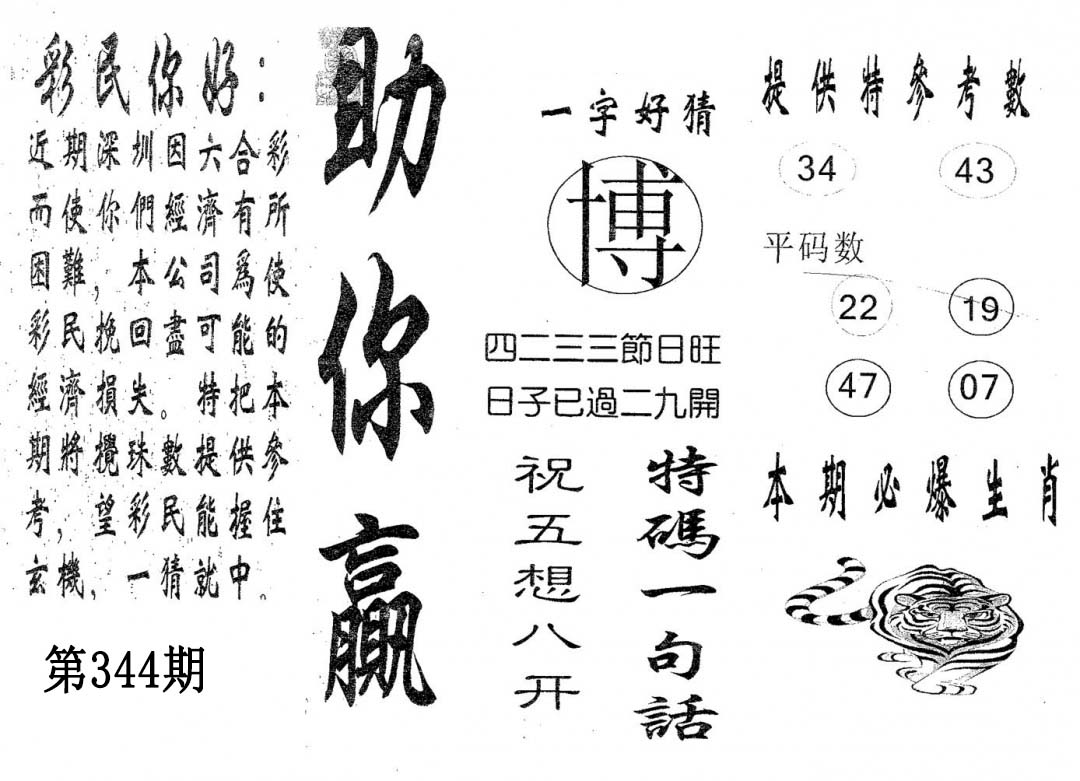 彩民你好:
近期深圳因六合彩
而使你們經濟有所
困難,本公司爲使
彩民挽回盡可能的
經濟損失。特把本
期將攪珠數提供參
考,望彩民能握住
玄機,一猜就中。
第344期
助你贏
一字好猜
博
四二三三節日旺
日子已過二九開
特碼一句話
祝五想八开
提供特參考數
34 43
平码数
22 19
47 07
本期必爆生肖